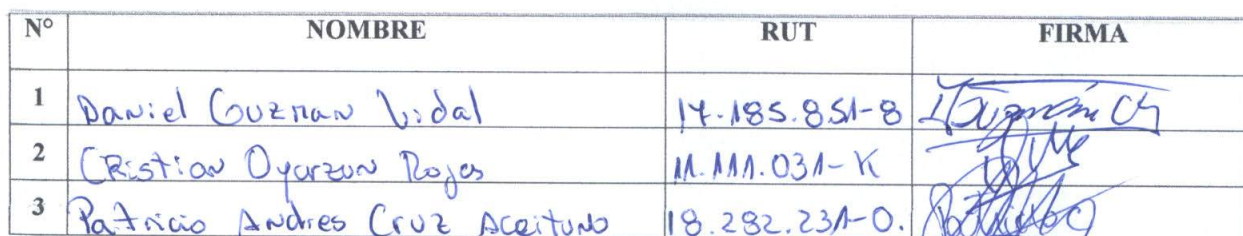 N° NOMBRE RUT FIRMA
1 Daniel Guzman Vidal 17.185.851-8
2 CRistian Oyarzun Rojas 11.111.031-K
3 Patricio Andres Cruz Aceituno 18.282.231-0.